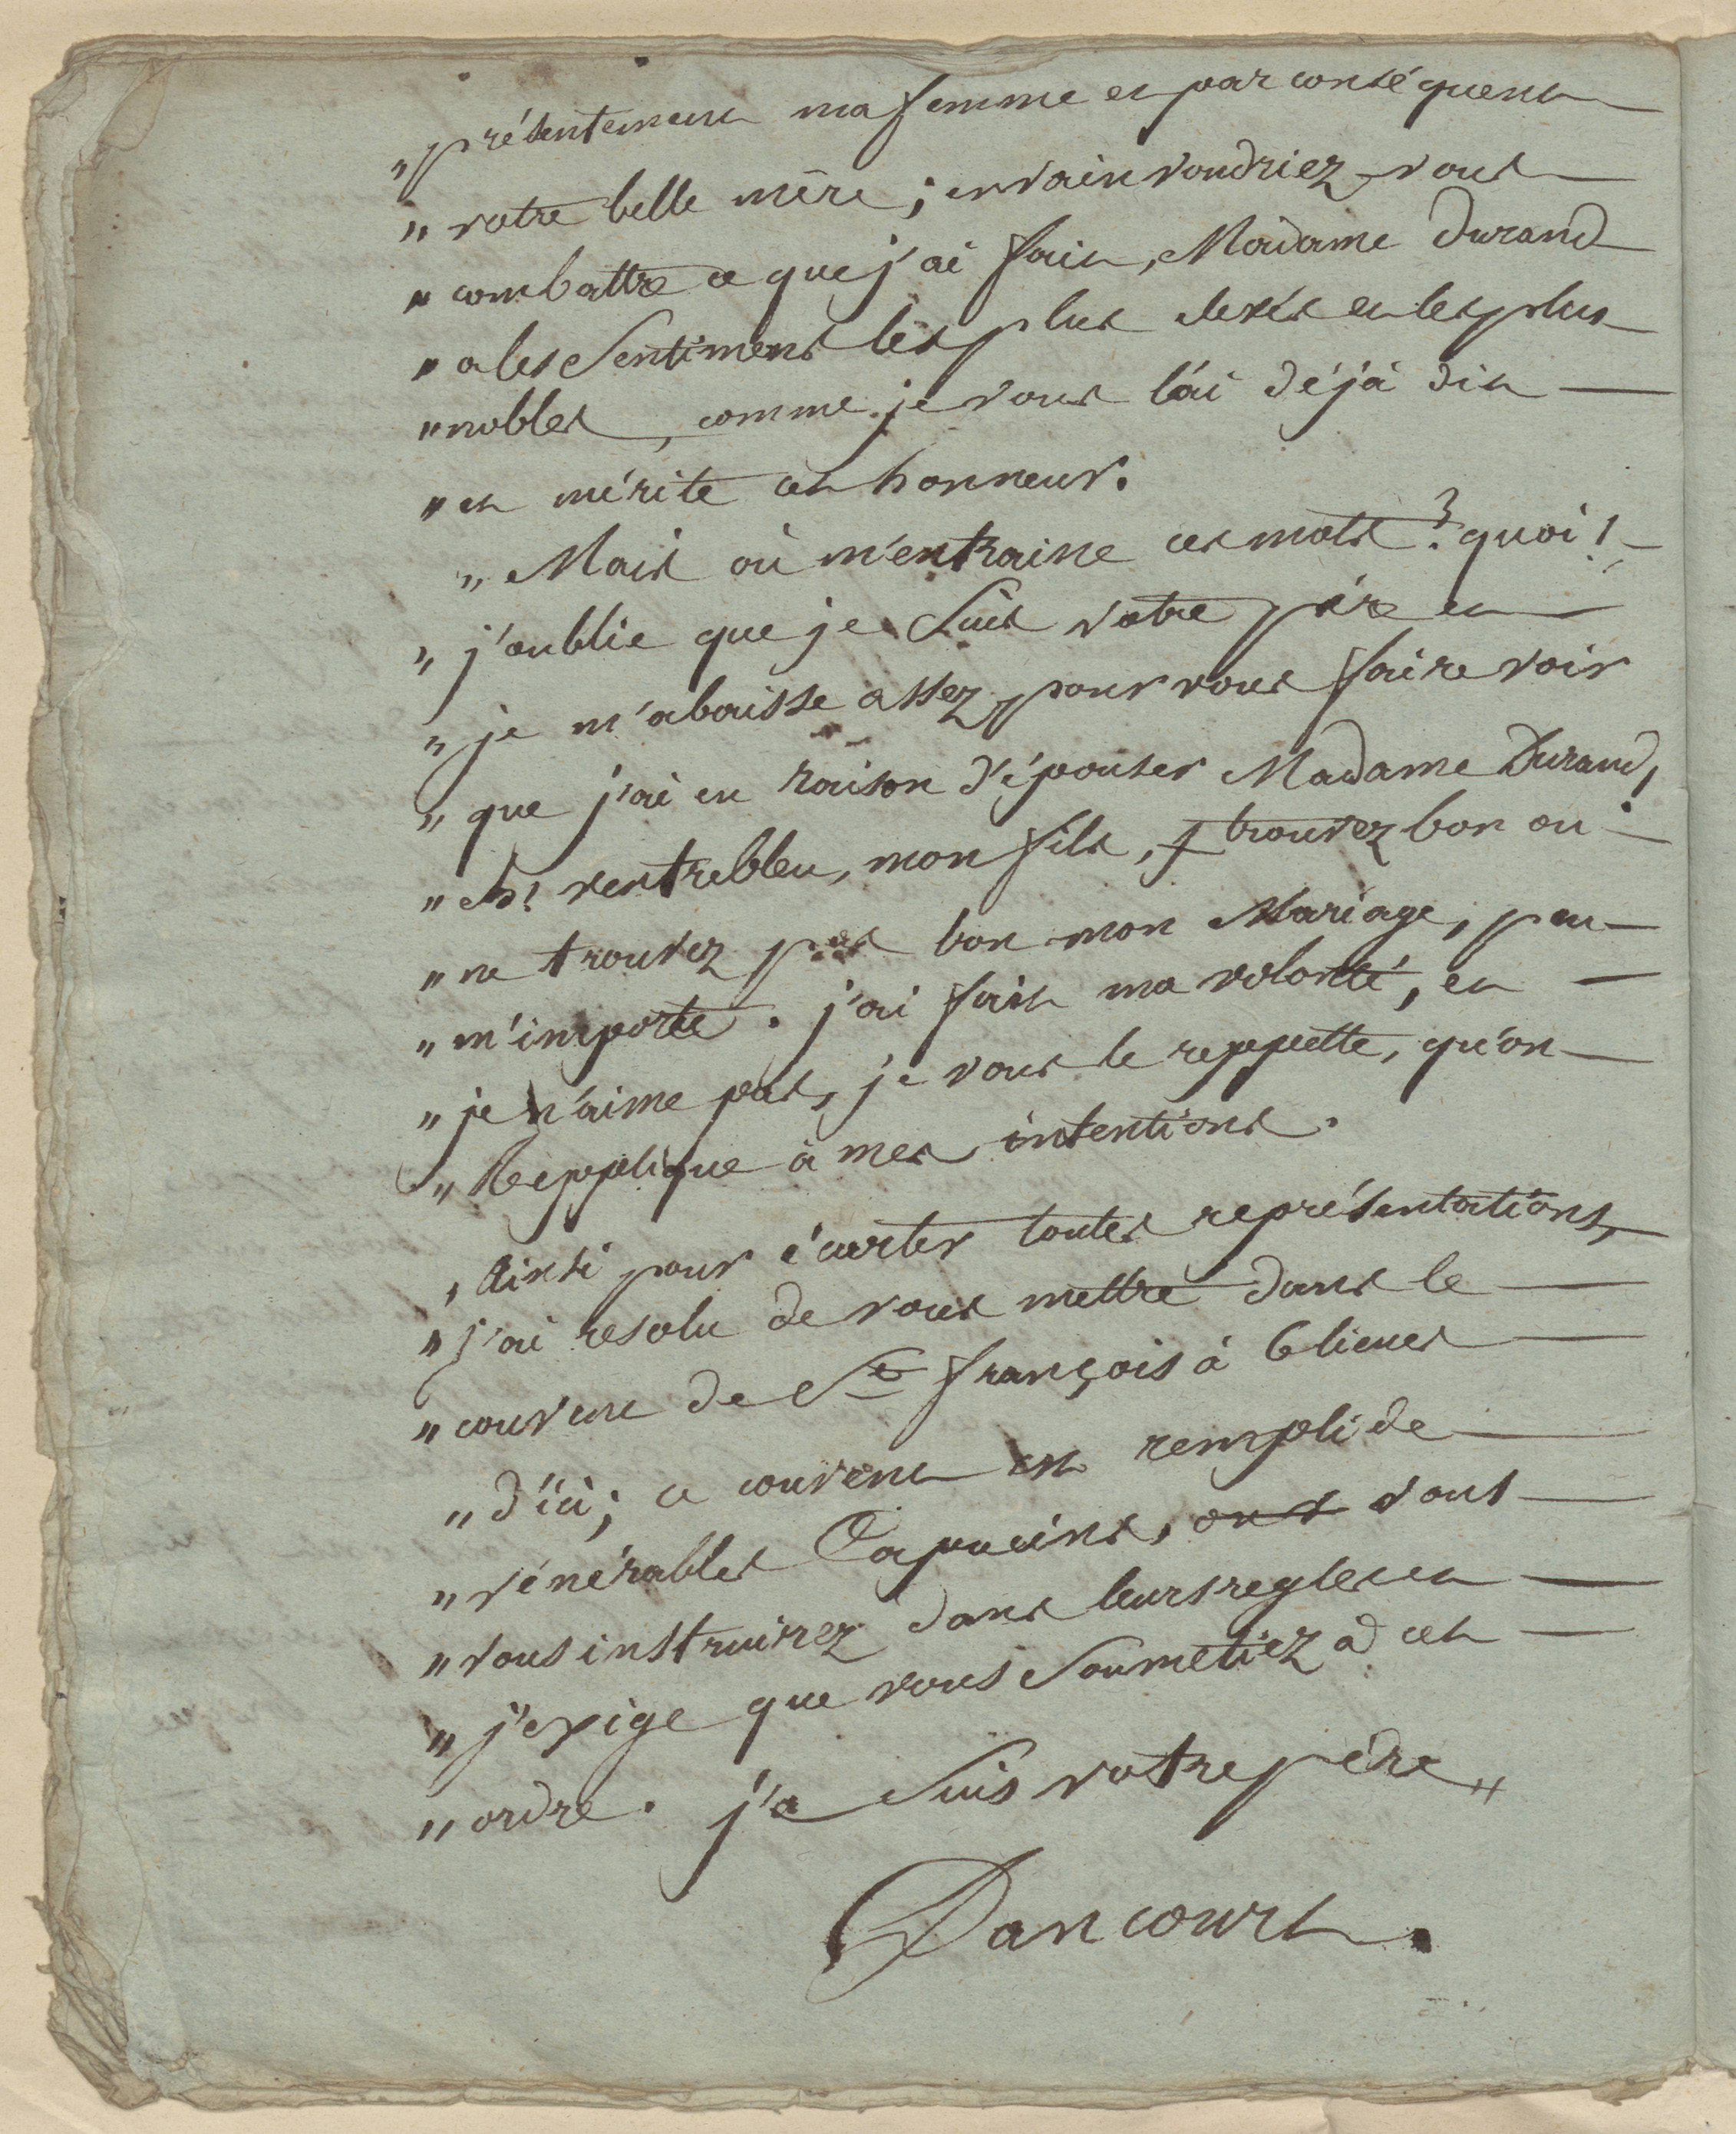 „ présentement ma femme et par conséquent
„ votre belle mère; en vain voudriez-vous
„ combattre ce que j'ai fait, Madame Durand
„ a les Sentimens les plus élevés et les plus
„ nobles, comme je vous l'ai déjà dit
„ et mérite cet honneur.
„ Mais où m'entraine ces mots? quoi!
„ j'oublie que je suis votre père et
„ je m'abaisse assez pour vous faire voir
„ que j'ai eu raison d'épouser Madame Durand!
„ eh! ventrebleu, mon fils, trouvez bon ou
„ ne trouvez pas bon mon Mariage, peu
„ m'importe. j'ai fait ma volonté, et
„ je n'aime pas, je vous le reppette, qu'on
„ Repplique à mes intentions.
„ Ainsi pour écarter toutes représentations,
„ j'ai resolu de vous mettre dans le
„ couvent de St françois à 6 lieues
„ d'ici; ce couvent est rempli de
„ vénérables Capucins, vous
„ vous instruirez dans leurs regles et
„ j'exige que vous Soumetiez à cet
„ ordre. je suis votre père „
Dancourt.